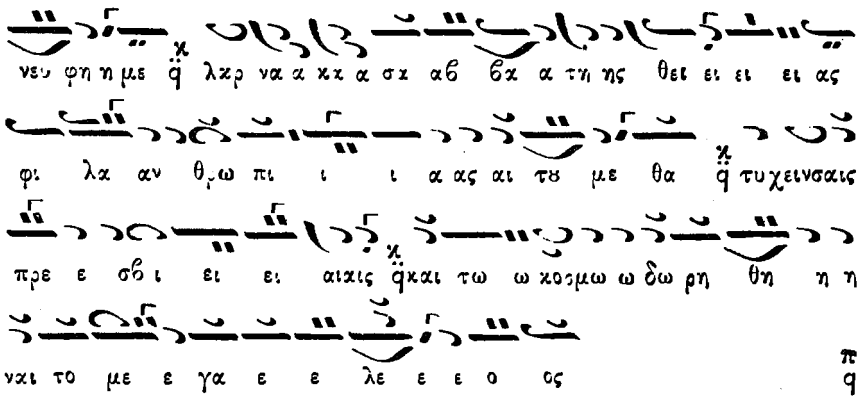 νευ φη η με κ̈ q̈ λκρ να α κκ α σκ αβ βκα α τη ης θει ει ει ει ας
φι λα αν θρω πι ι ι α ας αι τȣ με θα κ̈ q̈ τυ χειν σαις
πρε ε σβι ει ει αικις κ̈ q̈ και τω ω κοσμω ω δω ρη θη η η
ναι το με ε γα ε ε λε ε ε ο ος π q̈